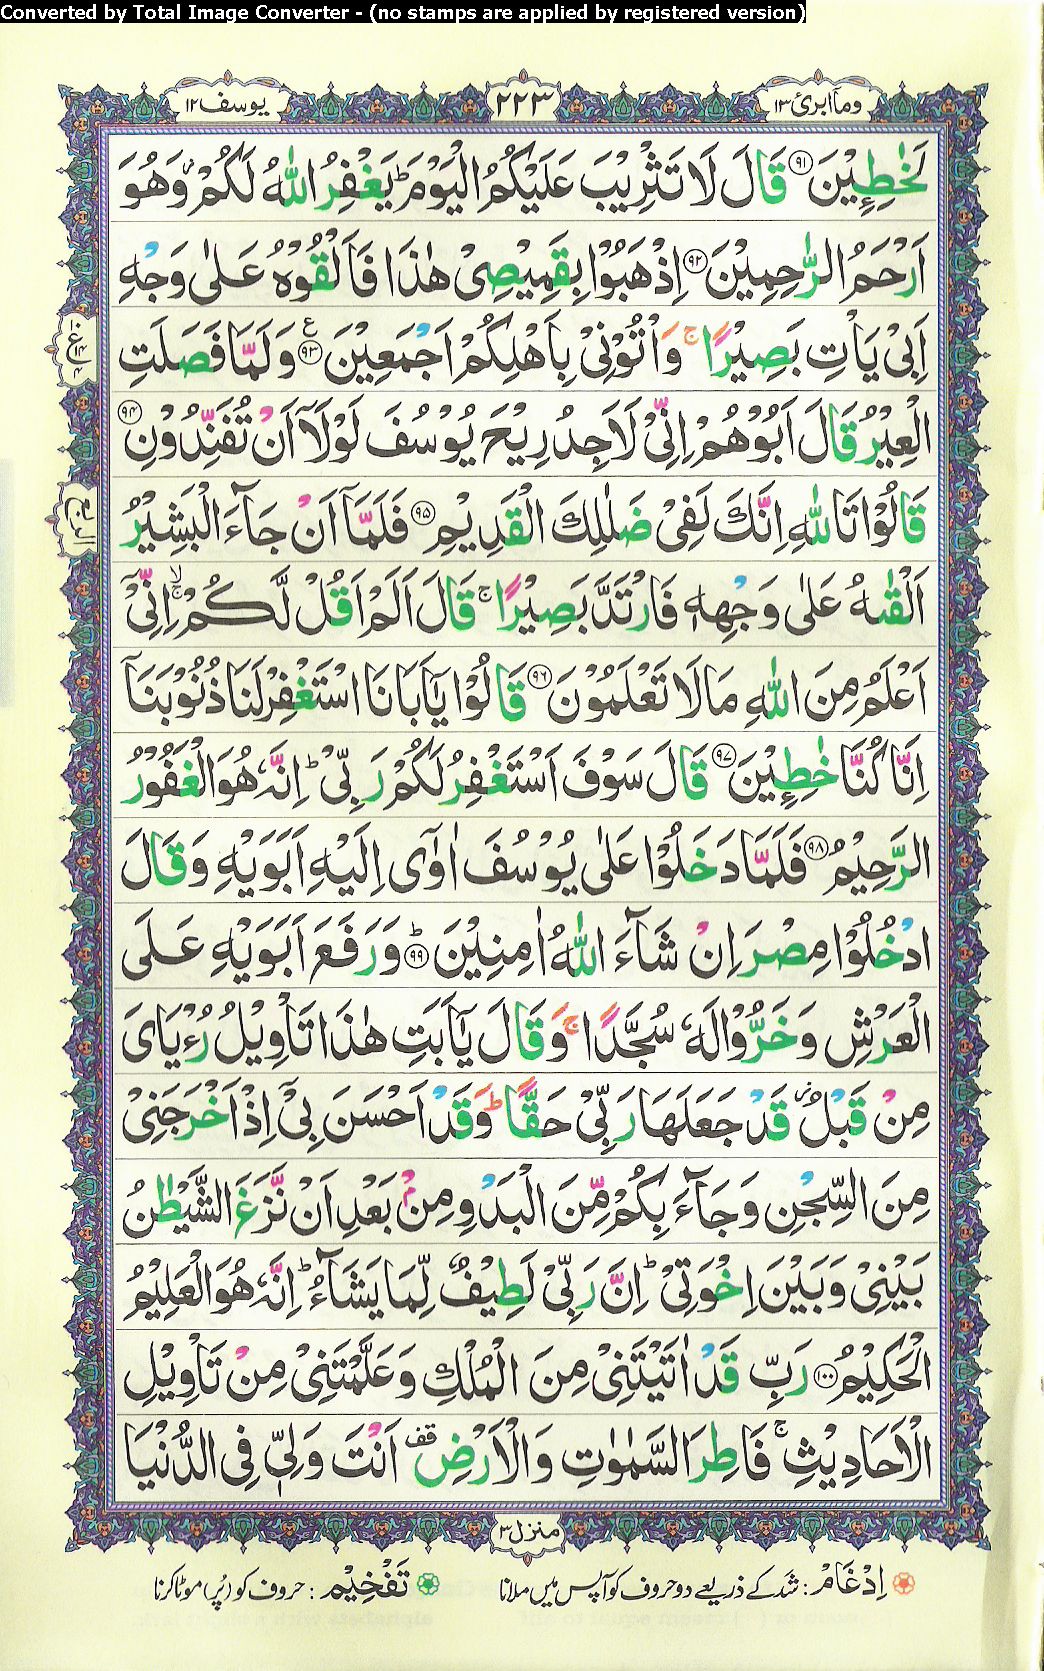 Converted by Total Image Converter - (no stamps are applied by registered version)
وما ابرئ ١٣
٢٢٣
يوسف ١٢
لَخٰطِـِٕيْنَ ٩١ قَالَ لَا تَثْرِيْبَ عَلَيْكُمُ الْيَوْمَ ؕ يَغْفِرُ اللّٰهُ لَكُمْ ؗ وَهُوَ
اَرْحَمُ الرّٰحِمِيْنَ ٩٢ اِذْهَبُوْا بِقَمِيْصِىْ هٰذَا فَاَلْقُوْهُ عَلٰى وَجْهِ
اَبِىْ يَاْتِ بَصِيْرًا ۚ وَاْتُوْنِىْ بِاَهْلِكُمْ اَجْمَعِيْنَ ٩٣ وَلَمَّا فَصَلَتِ
الْعِيْرُ قَالَ اَبُوْهُمْ اِنِّىْ لَاَجِدُ رِيْحَ يُوْسُفَ لَوْلَاۤ اَنْ تُفَنِّدُوْنِ ٩٤
قَالُوْا تَاللّٰهِ اِنَّكَ لَفِىْ ضَلٰلِكَ الْقَدِيْمِ ٩٥ فَلَمَّاۤ اَنْ جَآءَ الْبَشِيْرُ
اَلْقٰىهُ عَلٰى وَجْهِهٖ فَارْتَدَّ بَصِيْرًا ۚ قَالَ اَلَمْ اَقُلْ لَّكُمْ ۚۙ اِنِّىْۤ
اَعْلَمُ مِنَ اللّٰهِ مَا لَا تَعْلَمُوْنَ ٩٦ قَالُوْا يٰۤاَبَانَا اسْتَغْفِرْ لَنَا ذُنُوْبَنَاۤ
اِنَّا كُنَّا خٰطِـِٕيْنَ ٩٧ قَالَ سَوْفَ اَسْتَغْفِرُ لَكُمْ رَبِّىْ ؕ اِنَّهٗ هُوَ الْغَفُوْرُ
الرَّحِيْمُ ٩٨ فَلَمَّا دَخَلُوْا عَلٰى يُوْسُفَ اٰوٰۤى اِلَيْهِ اَبَوَيْهِ وَقَالَ
ادْخُلُوْا مِصْرَ اِنْ شَآءَ اللّٰهُ اٰمِنِيْنَ ؕ ٩٩ وَرَفَعَ اَبَوَيْهِ عَلَى
الْعَرْشِ وَخَرُّوْا لَهٗ سُجَّدًا ۚ وَقَالَ يٰۤاَبَتِ هٰذَا تَاْوِيْلُ رُءْيَاىَ
مِنْ قَبْلُ ؗ قَدْ جَعَلَهَا رَبِّىْ حَقًّا ؕ وَقَدْ اَحْسَنَ بِىْۤ اِذْ اَخْرَجَنِىْ
مِنَ السِّجْنِ وَجَآءَ بِكُمْ مِّنَ الْبَدْوِ مِنْۢ بَعْدِ اَنْ نَّزَغَ الشَّيْطٰنُ
بَيْنِىْ وَبَيْنَ اِخْوَتِىْ ؕ اِنَّ رَبِّىْ لَطِيْفٌ لِّمَا يَشَآءُ ؕ اِنَّهٗ هُوَ الْعَلِيْمُ
الْحَكِيْمُ ١٠٠ رَبِّ قَدْ اٰتَيْتَنِىْ مِنَ الْمُلْكِ وَعَلَّمْتَنِىْ مِنْ تَاْوِيْلِ
الْاَحَادِيْثِ ۚ فَاطِرَ السَّمٰوٰتِ وَالْاَرْضِ قف اَنْتَ وَلِىّٖ فِى الدُّنْيَا
منزل ٣
اِدْغَام : شد کے ذریعے دو حروف کو آپس میں ملانا
تَفْخِيْم : حروف کو (پُر) موٹا کرنا